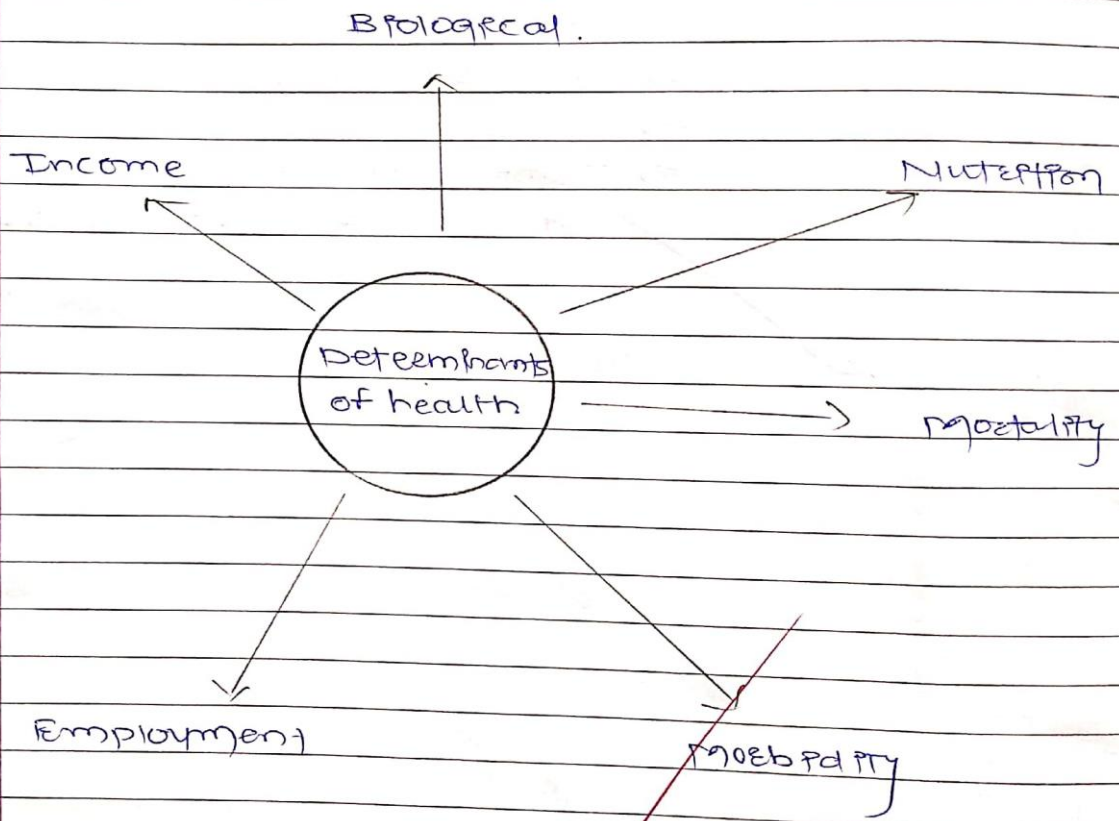 Biological.
Income
Nutrition
Determinants
of health
Mortality
Employment
Morbidity